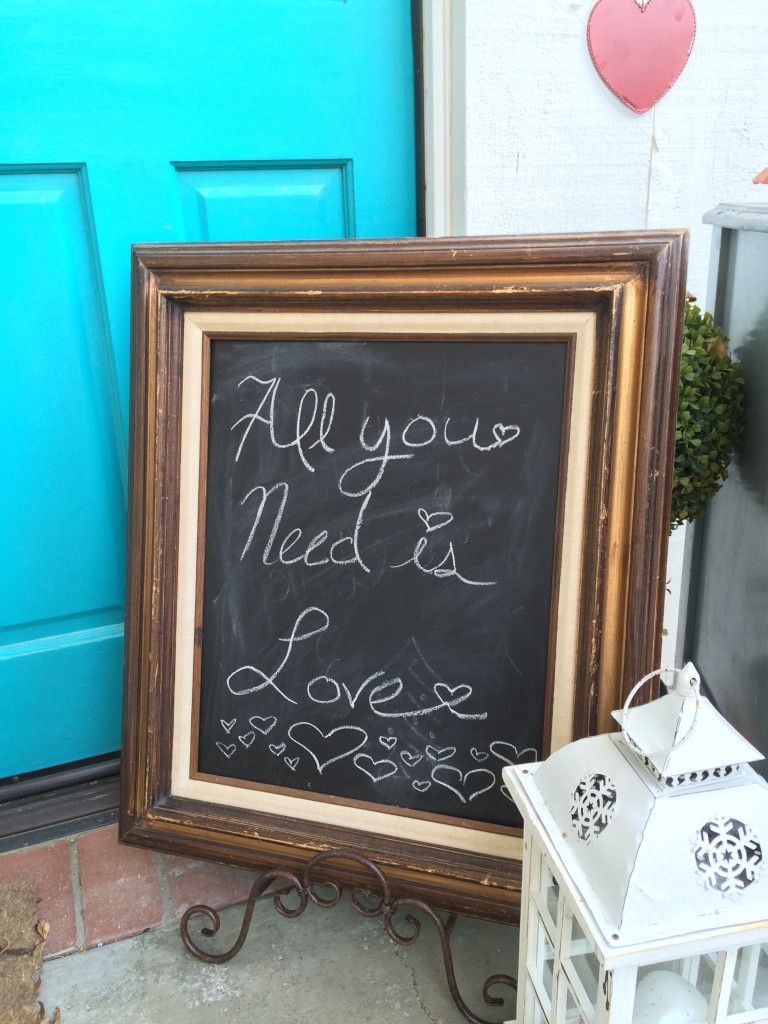 All you
Need is
Love